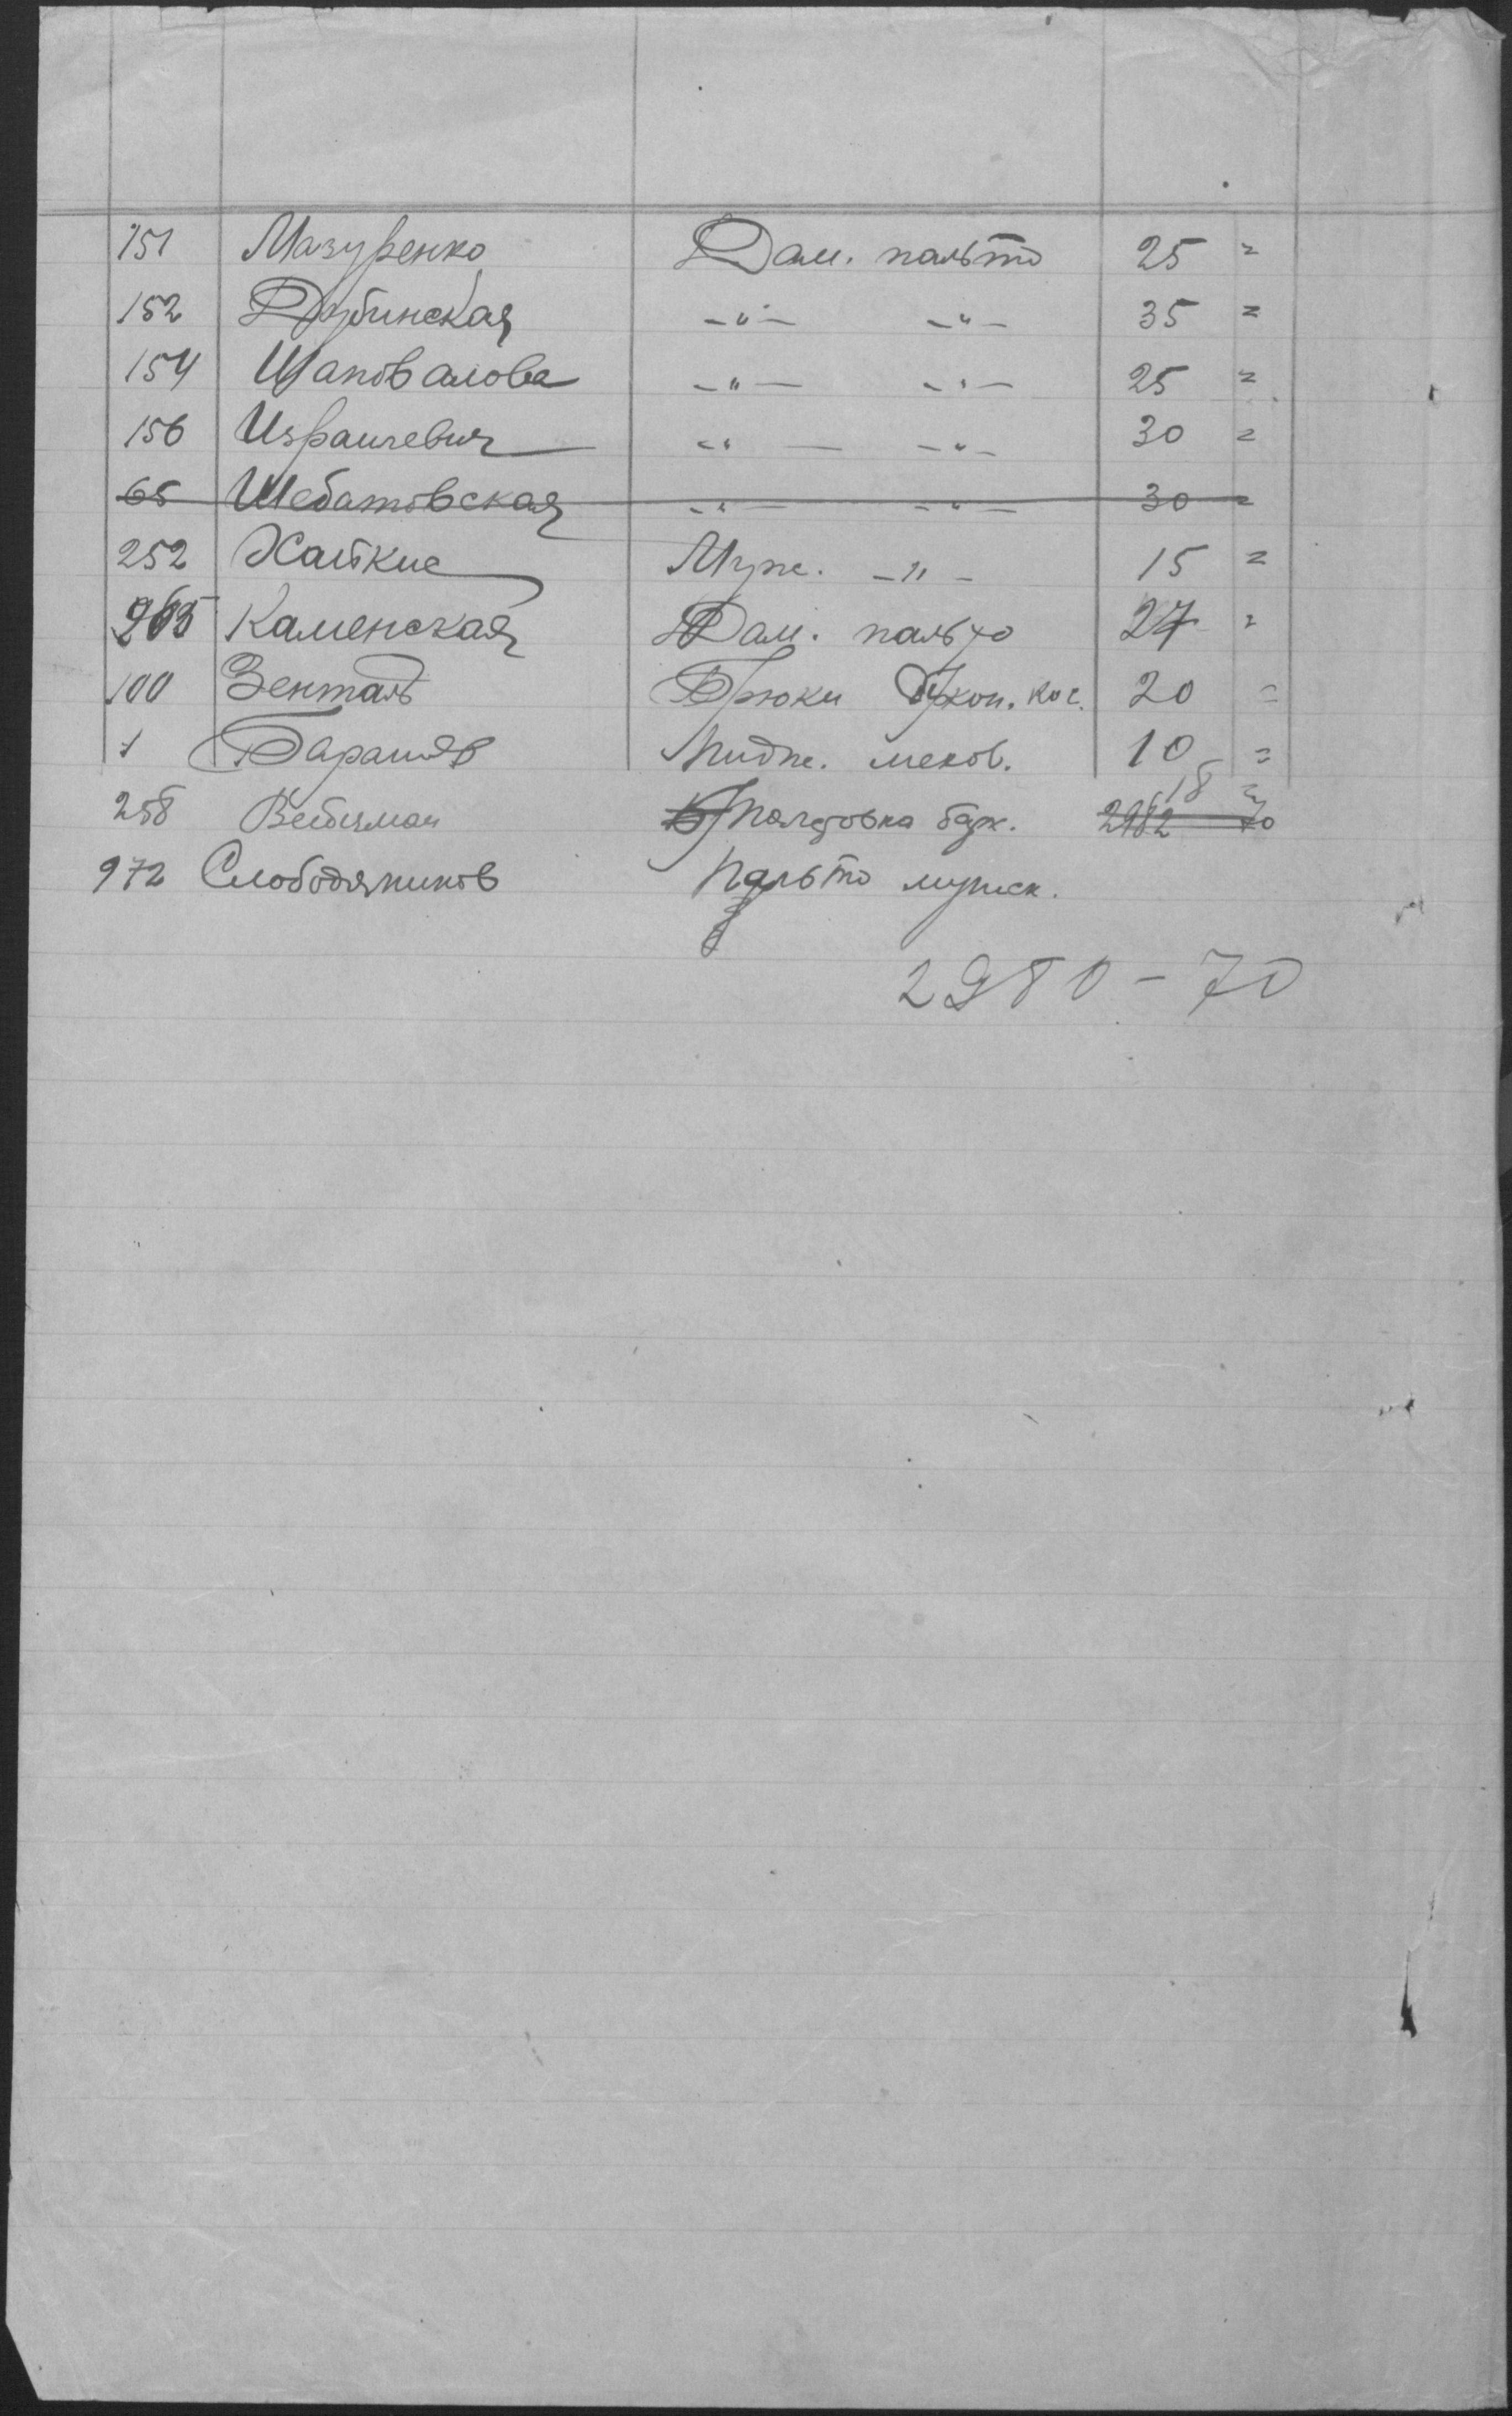 151 Мазуренко Дам. пальто 25 =
152 Дубинская -"- -"- 35 =
154 Шаповалова -"- -"- 25 =
156 Израилевич -"- -"- 30 =
65 Шебатовская -"- -"- 30 =
252 Хайкис Муж. -"- 15 =
265 Каменская Дам. пальто 27 =
100 Зенталь Брюки 20 =
1 Пидж. мехов. 10 =
258 Вейцман Толстовка 18 =
2982 70
972 Слободяников Пальто мужск.
2980-70